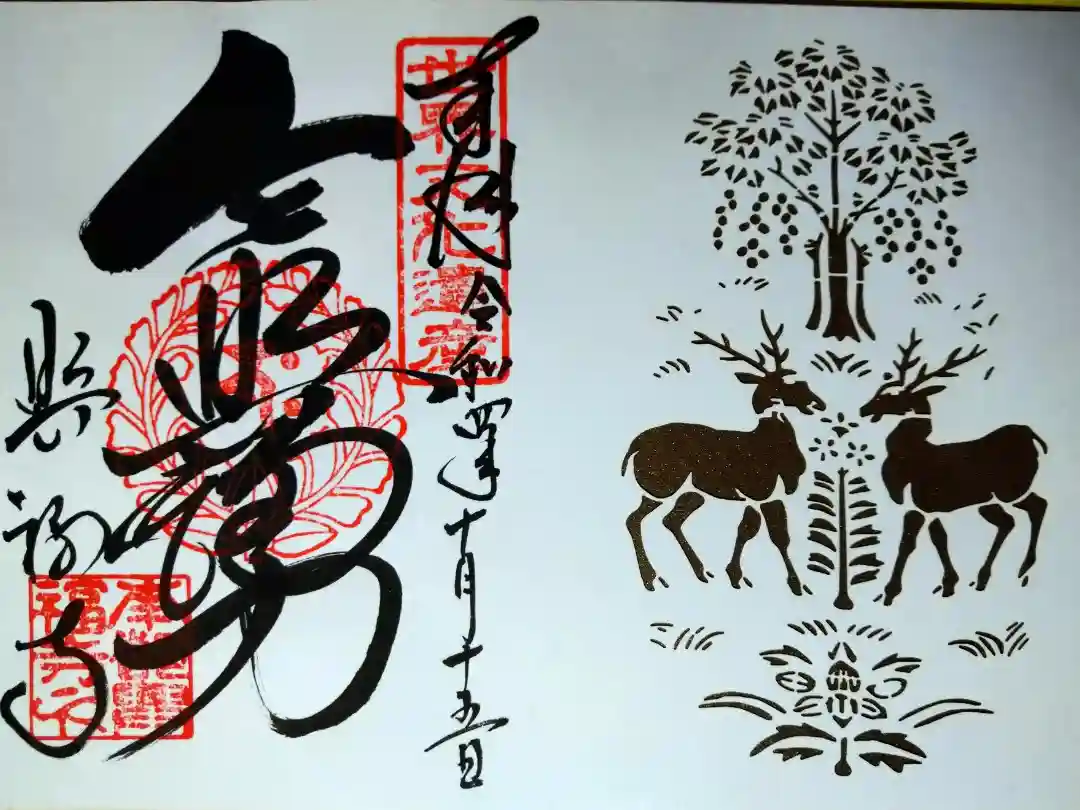 奉拝
令和四年十月十五日
世界文化遺産
令興福力
興福寺